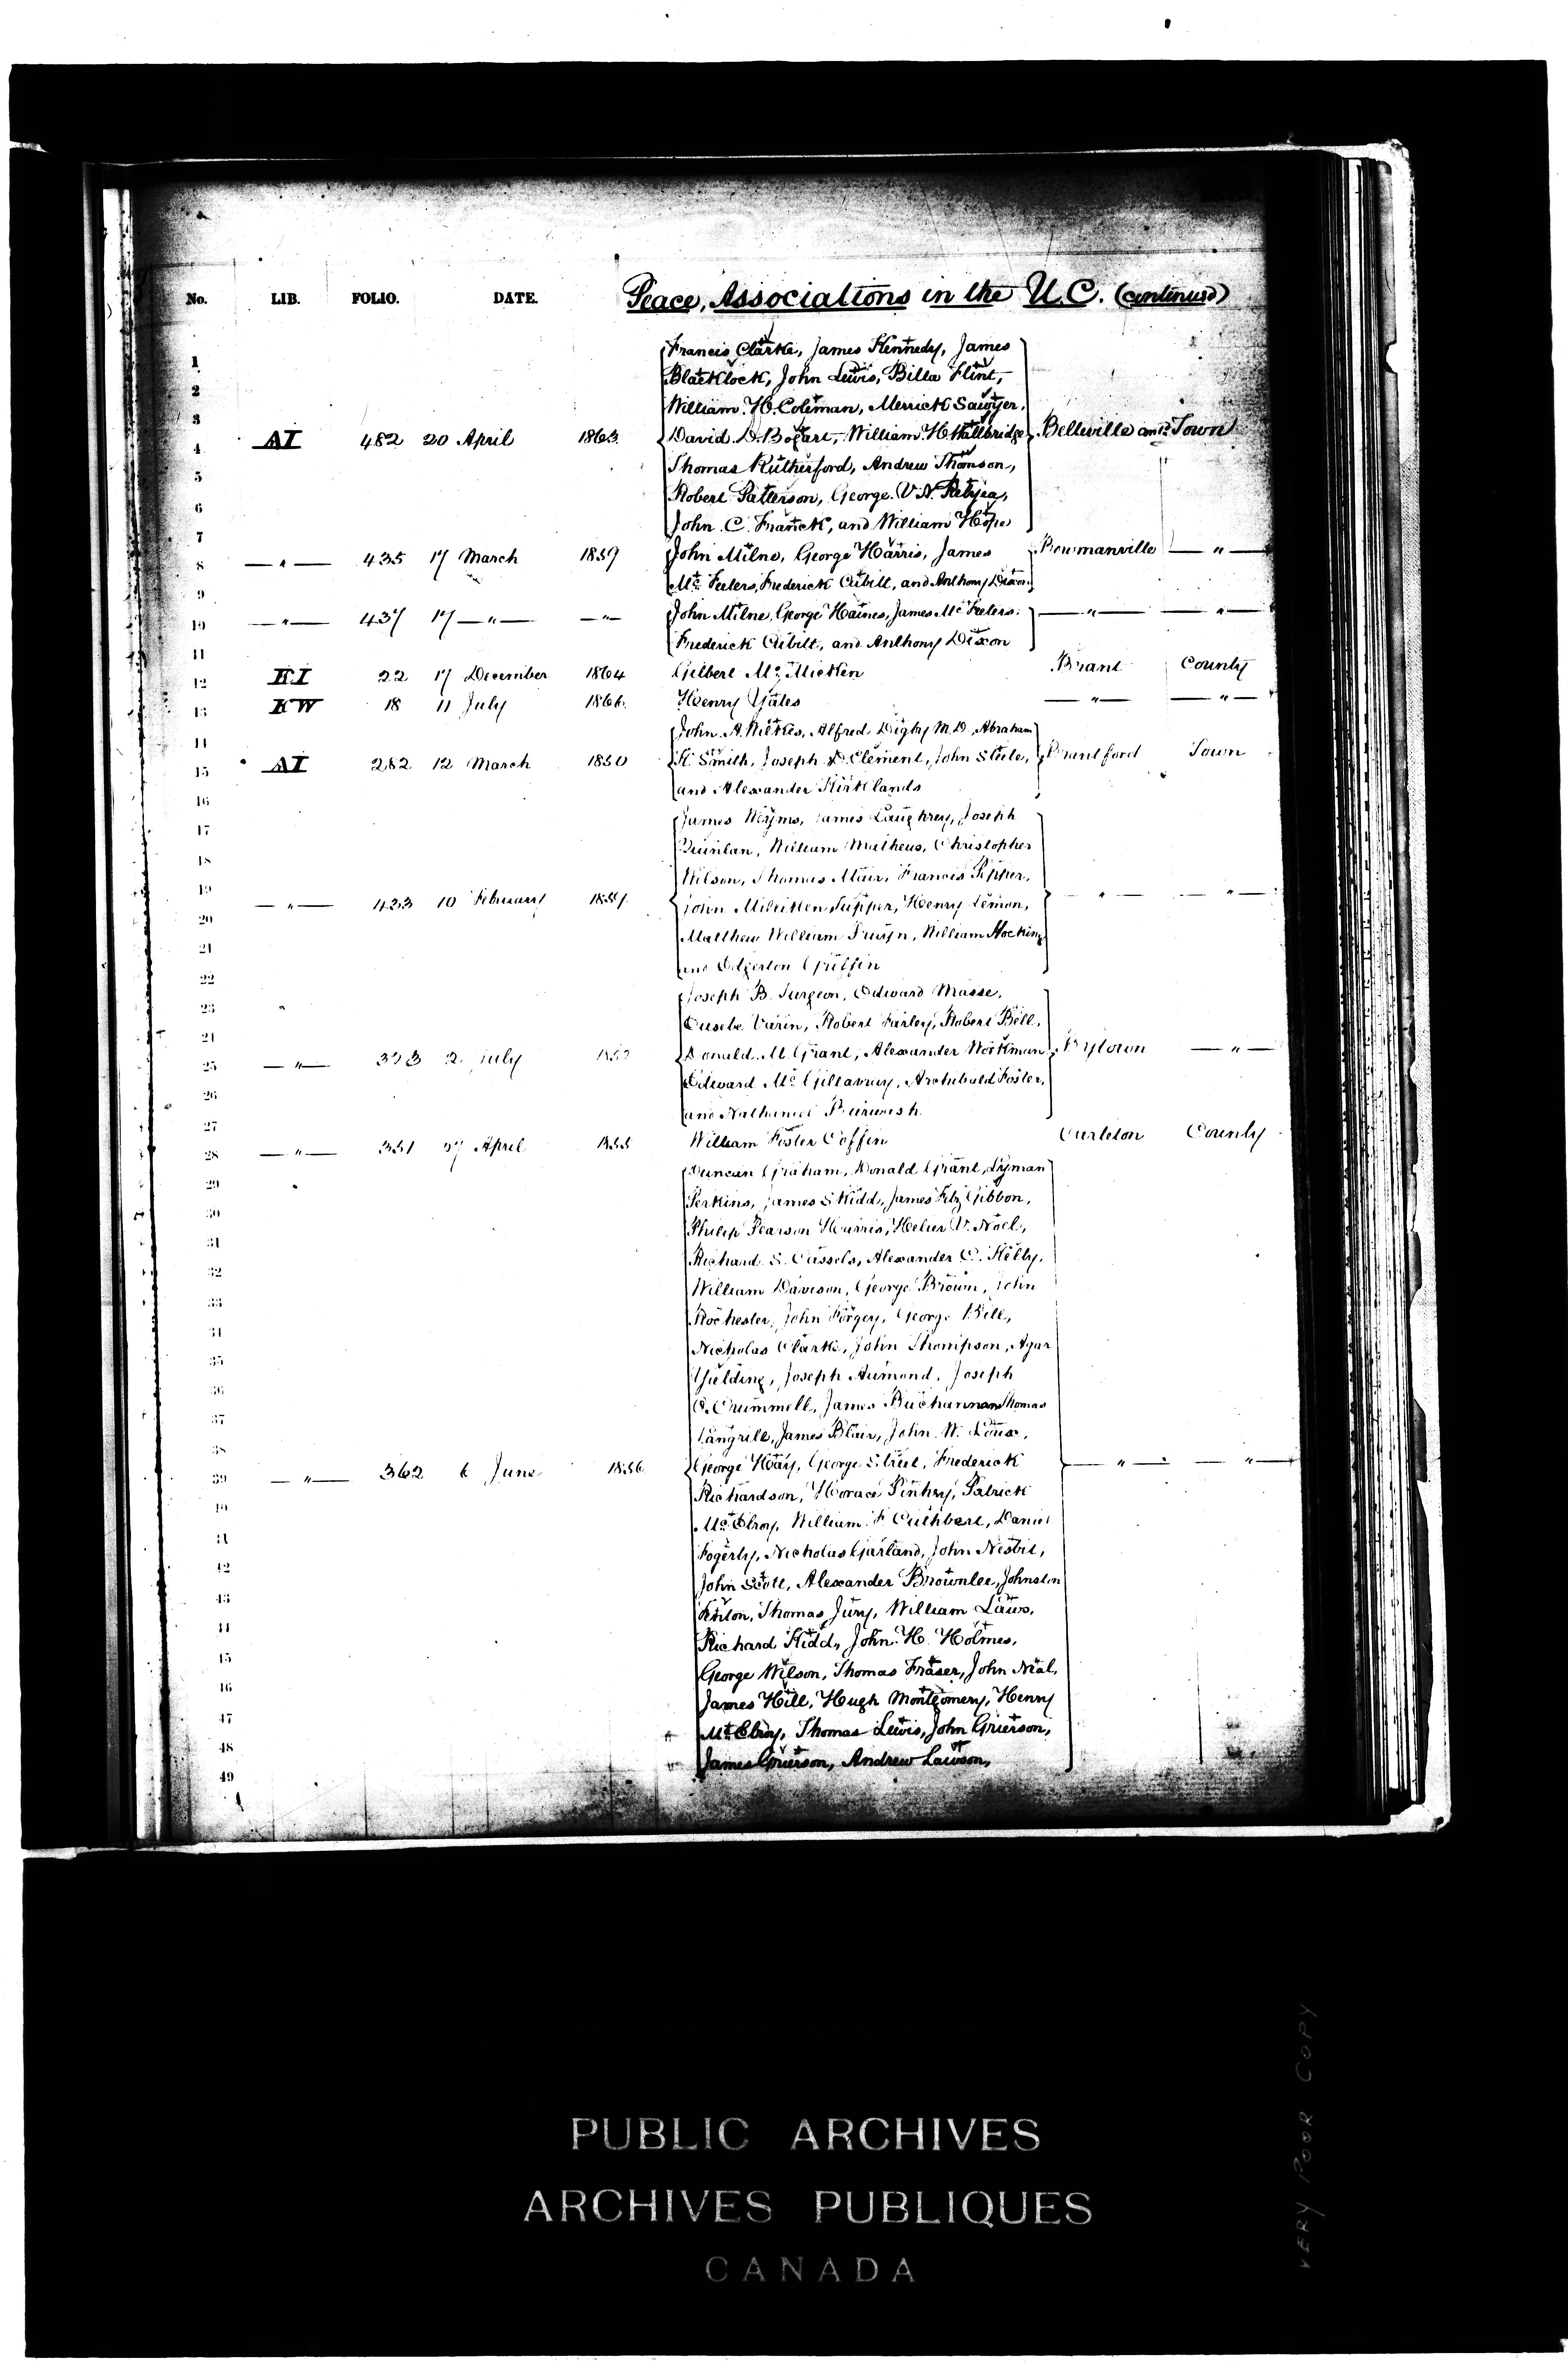 No. LIB. FOLIO. DATE. Peace, Associations in the U.C. (continued)
1 Francis Clarke, James Kennedy, James
2 Blacklock, John Lewis, Billa Flint,
3 William H. Coleman, Merrick Sawyer,
4 AI 482 20 April 1863 David D. Bogart, William H. Wallbridge Belleville Town
5 Thomas Rutherford, Andrew Thomson,
6 Robert Patterson, George V. N. Relyea,
7 John C. Franck, and William Hope
8 — " — 435 17 March 1859 John Milne, George Harris, James Bowmanville — " —
9 Mc Feeters, Frederick Cubitt, and Anthony Dixon
10 — " — 437 17 — " — — " — John Milne, George Haines, James Mc Feeters, — " — — " —
11 Frederick Cubitt, and Anthony Dixon
12 EI 22 17 December 1864 Gilbert Mc Micken Brant County
13 KW 18 11 July 1866 Henry Yates — " — — " —
14 John A. Wilkes, Alfred Digby M.D. Abraham
15 AI 282 12 March 1850 K. Smith, Joseph D. Clement, John Steele, Brantford Town
16 and Alexander Kirklands
17 James Weyms, James Laughrey, Joseph
18 Quinlan, William Matheus, Christopher
19 Wilson, Thomas Muir, Francis Pepper,
20 — " — 433 10 February 1859 John Milliken Tupper, Henry Lemon, — " — — " —
21 Matthew William Pruyn, William Hocking
22 and Edgerton Griffin
23 Joseph B. Turgeon, Edward Masse,
24 Eusebe Varin, Robert Farley, Robert Bell,
25 — " — 323 2 July 1852 Donald M. Grant, Alexander Workman Bytown — " —
26 Edward Mc Gillavray, Archibald Foster,
27 and Nathaniel Burwash
28 — " — 351 27 April 1855 William Foster Coffin Carleton County
29 Duncan Graham, Donald Grant, Lyman
30 Perkins, James Skidd, James Fitz Gibbon,
31 Philip Pearson Harris, Helier V. Noel,
32 Richard S. Cassels, Alexander C. Kelly,
33 William Davison, George Brown, John
34 Rochester, John Forgey, George Bell,
35 Nicholas Clarke, John Thompson, Agar
36 Yielding, Joseph Aumond, Joseph
37 C. Crummell, James Buchannan Thomas
38 Langrell, James Blair, John W. Loux,
39 — " — 362 6 June 1856 George Hay, George Street, Frederick — " — — " —
40 Richardson, Horace Pinhey, Patrick
41 Mc Elroy, William F Cuthbert, Daniel
42 Fogerty, Nicholas Garland, John Nesbit,
43 John Scott, Alexander Brownlee, Johnston
44 Fenton, Thomas Jury, William Laws,
45 Richard Kidd, John H. Holmes,
46 George Wilson, Thomas Fraser, John Neal,
47 James Hill, Hugh Montgomery, Henry
48 Mc Elroy, Thomas Lewis, John Grierson,
49 James Grierson, Andrew Lawson,
PUBLIC ARCHIVES
ARCHIVES PUBLIQUES
CANADA
VERY POOR COPY